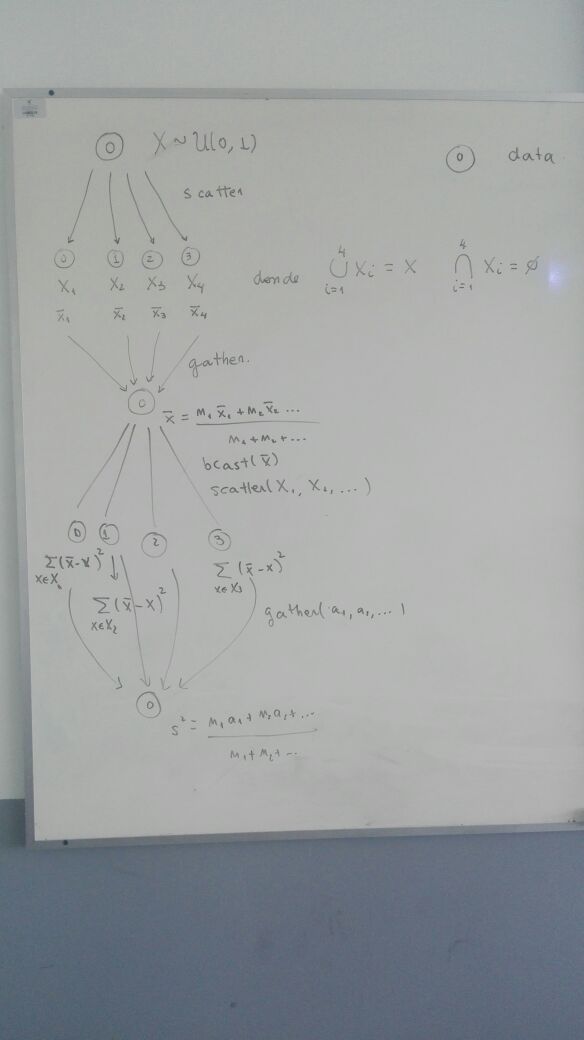 0 X ~ U(0,1)
0 data
scatter
0 1 2 3
X₁ X₂ X₃ X₄
x̄₁ x̄₂ x̄₃ x̄₄
donde ⋃ᵢ₌₁⁴ Xᵢ = X ⋂ᵢ₌₁⁴ Xᵢ = ∅
gather.
0 x̄ = (m₁ x̄₁ + m₂ x̄₂ ...) / (m₁ + m₂ + ...)
bcast(x̄)
scatter(X₁, X₂, ...)
0 1 2 3
Σ (x̄ - x)²
Σ x∈X₂ (x̄ - x)²
Σ x∈X₃ (x̄ - x)²
gather(a₁, a₂, ...)
0
s² = (m₁ a₁ + m₂ a₂ + ...) / (m₁ + m₂ + ...)